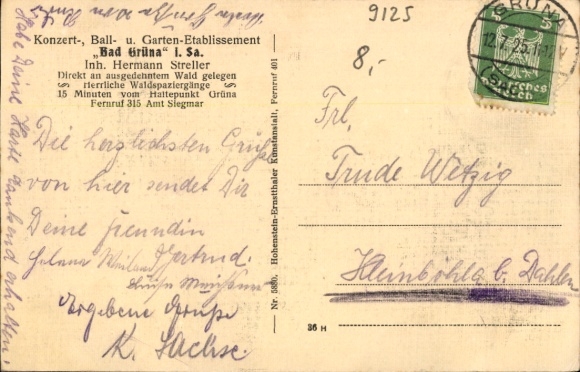 9125
8,-
Konzert-, Ball- u. Garten-Etablissement
„Bad Grüna" i. Sa.
Inh. Hermann Streller
Direkt an ausgedehntem Wald gelegen
Herrliche Waldspaziergänge
15 Minuten vom Haltepunkt Grüna
Fernruf 315 Amt Siegmar
Die herzlichsten Grüße
von hier sendet Dir
Deine Freundin
Gertrud.
Helena
Ergebene Grüße
K. Sachse
Habe Deine Karte dankend erhalten.
Nr. 5880. Hohenstein-Ernstthaler Kunstanstalt, Fernruf 401
GRÜNA
5
5
Deutsches Reich
Frl.
Trude Wetzig
Kleinböhla b. Dahlen
36 H